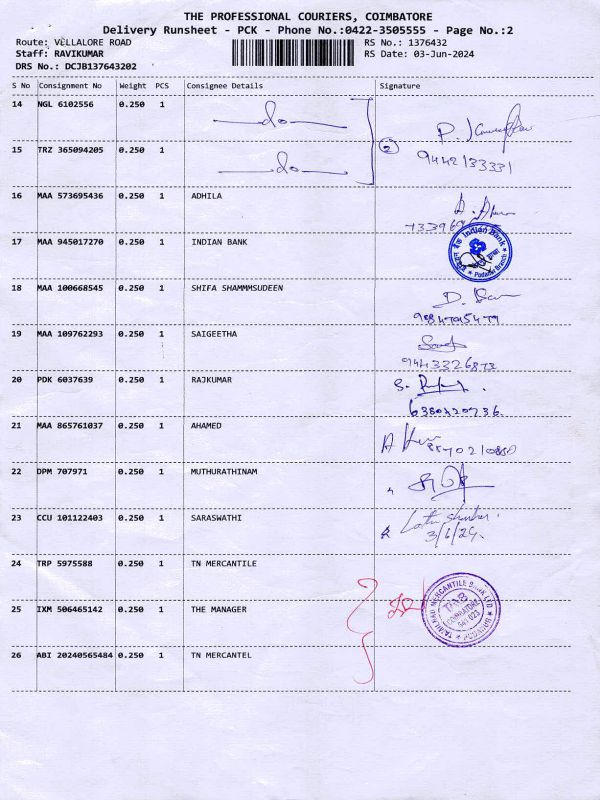 THE PROFESSIONAL COURIERS, COIMBATORE
Delivery Runsheet - PCK - Phone No.:0422-3505555 - Page No.:2
Route: VELLALORE ROAD RS No.: 1376432
Staff: RAVIKUMAR RS Date: 03-Jun-2024
DRS No.: DCJB137643202
S No Consignment No Weight PCS Consignee Details Signature
14 NGL 6102556 0.250 1 do
15 TRZ 365094205 0.250 1 do 2 9442133331
16 MAA 573695436 0.250 1 ADHILA
17 MAA 945017270 0.250 1 INDIAN BANK Indian Bank Podanur Branch
18 MAA 100668545 0.250 1 SHIFA SHAMMMSUDEEN
19 MAA 109762293 0.250 1 SAIGEETHA 9443326873
20 PDK 6037639 0.250 1 RAJKUMAR
21 MAA 865761037 0.250 1 AHAMED
22 DPM 707971 0.250 1 MUTHURATHINAM
23 CCU 101122403 0.250 1 SARASWATHI 3/6/24.
24 TRP 5975588 0.250 1 TN MERCANTILE
25 IXM 506465142 0.250 1 THE MANAGER TAMILNAD MERCANTILE BANK LTD COIMBATORE 641 023 PODANUR
26 ABI 20240565484 0.250 1 TN MERCANTEL